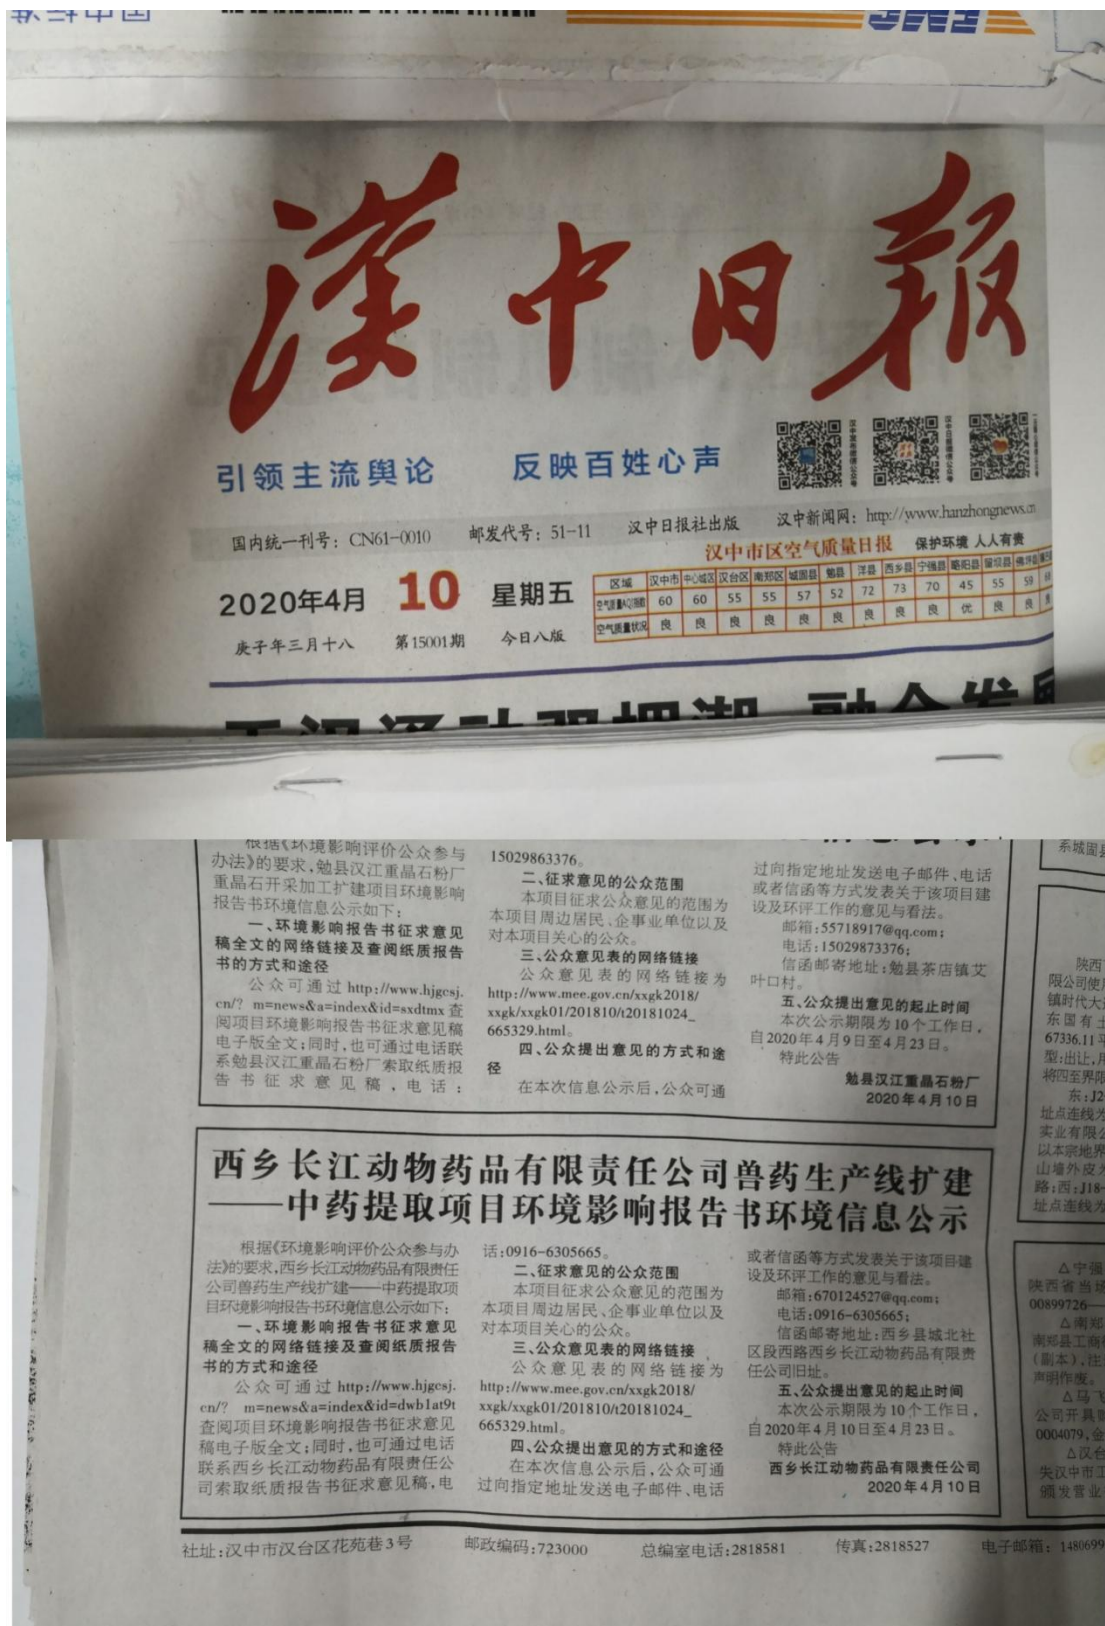 漢中日報
引领主流舆论 反映百姓心声
汉中发布微信公众号
汉中日报微信公众号
国内统一刊号：CN61-0010 邮发代号：51-11 汉中日报社出版 汉中新闻网：http://www.hanzhongnews.cn
汉中市区空气质量日报 保护环境 人人有责
2020年4月 10 星期五
庚子年三月十八 第15001期 今日八版
区域 汉中市 中心城区 汉台区 南郑区 城固县 勉县 洋县 西乡县 宁强县 略阳县 留坝县 佛坪县
空气质量AQI指数 60 60 55 55 57 52 72 73 70 45 55 59
空气质量状况 良 良 良 良 良 良 良 良 良 优 良 良
根据《环境影响评价公众参与
办法》的要求，勉县汉江重晶石粉厂
重晶石开采加工扩建项目环境影响
报告书环境信息公示如下：
一、环境影响报告书征求意见
稿全文的网络链接及查阅纸质报告
书的方式和途径
公众可通过 http://www.hjgcsj.
cn/? m=news&a=index&id=sxdtmx 查
阅项目环境影响报告书征求意见稿
电子版全文；同时，也可通过电话联
系勉县汉江重晶石粉厂索取纸质报
告书征求意见稿，电话：
15029863376。
二、征求意见的公众范围
本项目征求公众意见的范围为
本项目周边居民、企事业单位以及
对本项目关心的公众。
三、公众意见表的网络链接
公众意见表的网络链接为
http://www.mee.gov.cn/xxgk2018/
xxgk/xxgk01/201810/t20181024_
665329.html。
四、公众提出意见的方式和途
径
在本次信息公示后，公众可通
过向指定地址发送电子邮件、电话
或者信函等方式发表关于该项目建
设及环评工作的意见与看法。
邮箱：55718917@qq.com；
电话：15029873376；
信函邮寄地址：勉县茶店镇艾
叶口村。
五、公众提出意见的起止时间
本次公示期限为10个工作日，
自2020年4月9日至4月23日。
特此公告
勉县汉江重晶石粉厂
2020年4月10日
西乡长江动物药品有限责任公司兽药生产线扩建
——中药提取项目环境影响报告书环境信息公示
根据《环境影响评价公众参与办
法》的要求，西乡长江动物药品有限责任
公司兽药生产线扩建——中药提取项
目环境影响报告书环境信息公示如下：
一、环境影响报告书征求意见
稿全文的网络链接及查阅纸质报告
书的方式和途径
公众可通过 http://www.hjgcsj.
cn/? m=news&a=index&id=dwb1at9t
查阅项目环境影响报告书征求意见
稿电子版全文；同时，也可通过电话
联系西乡长江动物药品有限责任公
司索取纸质报告书征求意见稿，电
话：0916-6305665。
二、征求意见的公众范围
本项目征求公众意见的范围为
本项目周边居民、企事业单位以及
对本项目关心的公众。
三、公众意见表的网络链接
公众意见表的网络链接为
http://www.mee.gov.cn/xxgk2018/
xxgk/xxgk01/201810/t20181024_
665329.html。
四、公众提出意见的方式和途径
在本次信息公示后，公众可通
过向指定地址发送电子邮件、电话
或者信函等方式发表关于该项目建
设及环评工作的意见与看法。
邮箱：670124527@qq.com；
电话：0916-6305665；
信函邮寄地址：西乡县城北社
区段西路西乡长江动物药品有限责
任公司旧址。
五、公众提出意见的起止时间
本次公示期限为10个工作日，
自2020年4月10日至4月23日。
特此公告
西乡长江动物药品有限责任公司
2020年4月10日
系城固县
陕西
限公司使用
镇时代大道
东国有土
67336.11平
型：出让，用
将四至界限
东：J2
址点连线为
实业有限公
以本宗地界
山墙外皮为
路；西：J18-
址点连线为
△宁强
陕西省当场
00899726—
△南郑
南郑县工商
（副本），注
声明作废。
△马飞
公司开具购
0004079，金
△汉台
失汉中市工
颁发营业
社址：汉中市汉台区花苑巷3号 邮政编码：723000 总编室电话：2818581 传真：2818527 电子邮箱：1480699